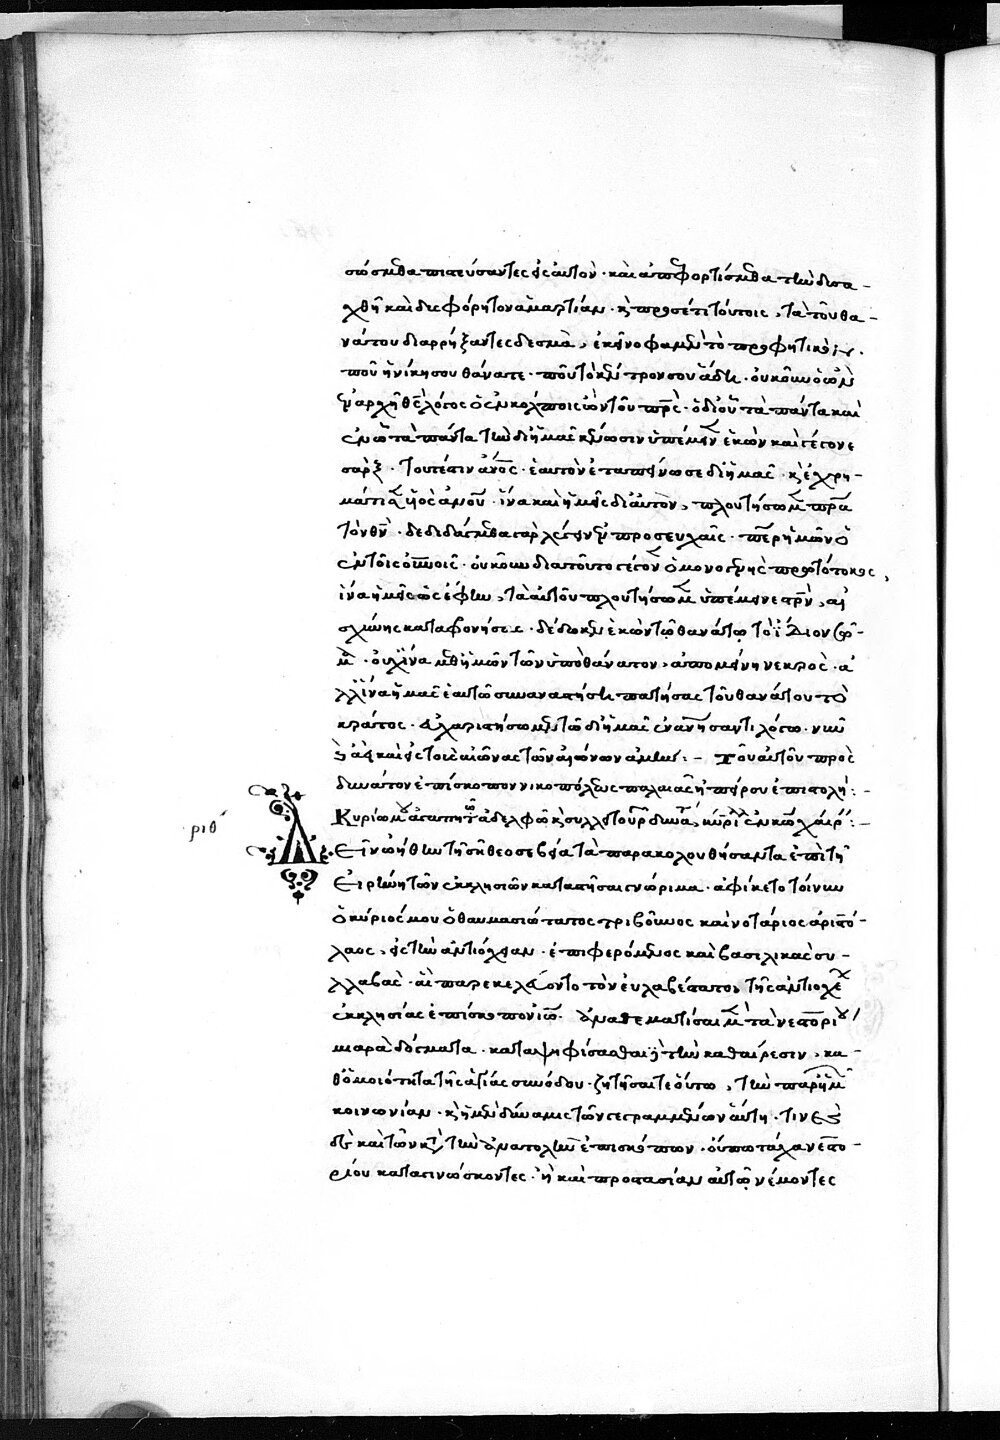 σιόσμεθα πιστεύσαντες εἰς αὐτόν· καὶ ἀποφορτισόμεθα τὴν δυσα-
χθῆ καὶ δυσφόρητον ἁμαρτίαν· κ προσέτι τούτοις, τὰ τοῦ θα-
νάτου διαρρήξαντες δεσμά, ἐκεῖνο φαμὲν τὸ προφητικόν·
ποῦ ἡ νίκη σου θάνατε· ποῦ τὸ κέντρον σου ἅδη· οὐκοῦν ὁ ὢν
ἐν ἀρχῆ θς λόγος ὁ ἐν κόλποις ὢν τοῦ πρς· ὁ δι' οὗ τὰ πάντα καὶ
ἐν ὧ τὰ πάντα τὴν δι' ἡμᾶς κένωσιν ὑπέμεινεν ἑκὼν καὶ γέγονε
σάρξ· τουτέστιν ἄνος· ἑαυτὸν ἐταπείνωσε δι' ἡμᾶς· κ ἐχρη-
μάτισεν υἱὸς ἀνου· ἵνα καὶ ἡμεῖς δι' αὐτόν, πλουτήσωμεν πρα
τὸν θν· δεδιδάγμεθα γὰρ λέγειν ἐν προσευχαῖς· περ ἡμῶν ὁ
ἐν τοῖς οὐνοῖς· οὐκοῦν διὰ τοῦτο γέγονεν ὁ μονογενὴς πρωτότοκος,
ἵνα ἡμεῖς ὡς ἔφην, τὰ αὐτοῦ πλουτήσωμεν ὑπέμεινε στρν, αἰ
σχύνης καταφρονήσας· δέδωκεν ἑκὼν τῶ θανάτω τὸ ἴδιον σῶ-
μα· οὐχ ἵνα μεθ' ἡμῶν τῶν ὑπὸ θάνατον, ἀπομείνη νεκρός· ἀ
λλ' ἵνα ἡμᾶς ἑαυτῶ συναναστήση πατήσας τοῦ θανάτου τὸ
κράτος· εὐχαριστήσωμεν τῶ δι' ἡμᾶς ἐνανθρωπήσαντι λόγω· νῦν
κ ἀεὶ καὶ εἰς τοὺς αἰῶνας τῶν αἰώνων ἀμήν:- Τοῦ αὐτοῦ πρὸς
δυνάτον ἐπίσκοπον νικοπόλεως παλαιᾶς ἠπείρου ἐπιστολή:-
Κυρίω μου ἀγαπητῶ ἀδελφῶ κ συλλειτουργῶ δυνάτω, κύριλλος ἐν κω χαίρειν:-
ριθ
Δεῖν ὠήθην τῆ σῆ θεοσεβεία τὰ παρακολουθήσαντα ἐπὶ τῆ
Εἰρήνη τῶν ἐκκλησιῶν καταστῆσαι γνώριμα· ἀφίκετο τοίνυν
ὁ κύριός μου ὁ θαυμασιώτατος τριβοῦνος καὶ νοτάριος ἀριστό-
λαος, εἰς τὴν ἀντιόχειαν· ἐπιφερόμενος καὶ βασιλικὰς συ-
λλαβάς· αἳ παρεκελεύοντο τὸν εὐλαβέστατον τῆς ἀντιοχέων
ἐκκλησίας ἐπίσκοπον ἰω· ἀναθεματίσαι μὲν τὰ νεστορίου
μιαρὰ δόγματα· καταψηφίσασθαι δὲ τὴν καθαίρεσιν, κα-
θ' ὁμοιότητα τῆς ἁγίας συνόδου· ζητῆσαί τε οὕτω, τὴν παρ' ἡμῶν
κοινωνίαν· κ ἡ μὲν δύναμις τῶν γεγραμμένων αὕτη· τινὲς
δὲ καὶ τῶν κατὰ τὴν ἀνατολὴν ἐπισκόπων· οὔπω τάχα νεστο-
ρίου καταγινώσκοντες· ἢ καὶ προστασίαν αὐτῶ νέμοντες